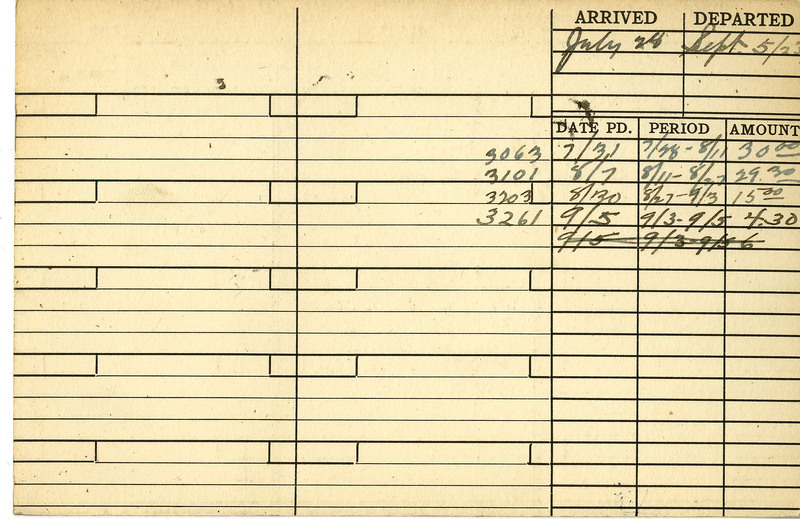 ARRIVED DEPARTED
July 28 Sept. 5/2
DATE PD. PERIOD AMOUNT
3063 7/31 7/28-8/11 30 00
3101 8/7 8/11-8/27 29.30
3203 8/30 8/27-9/3 15 00
3261 9/5 9/3-9/5 4.30
9/5 9/3-9/5 6